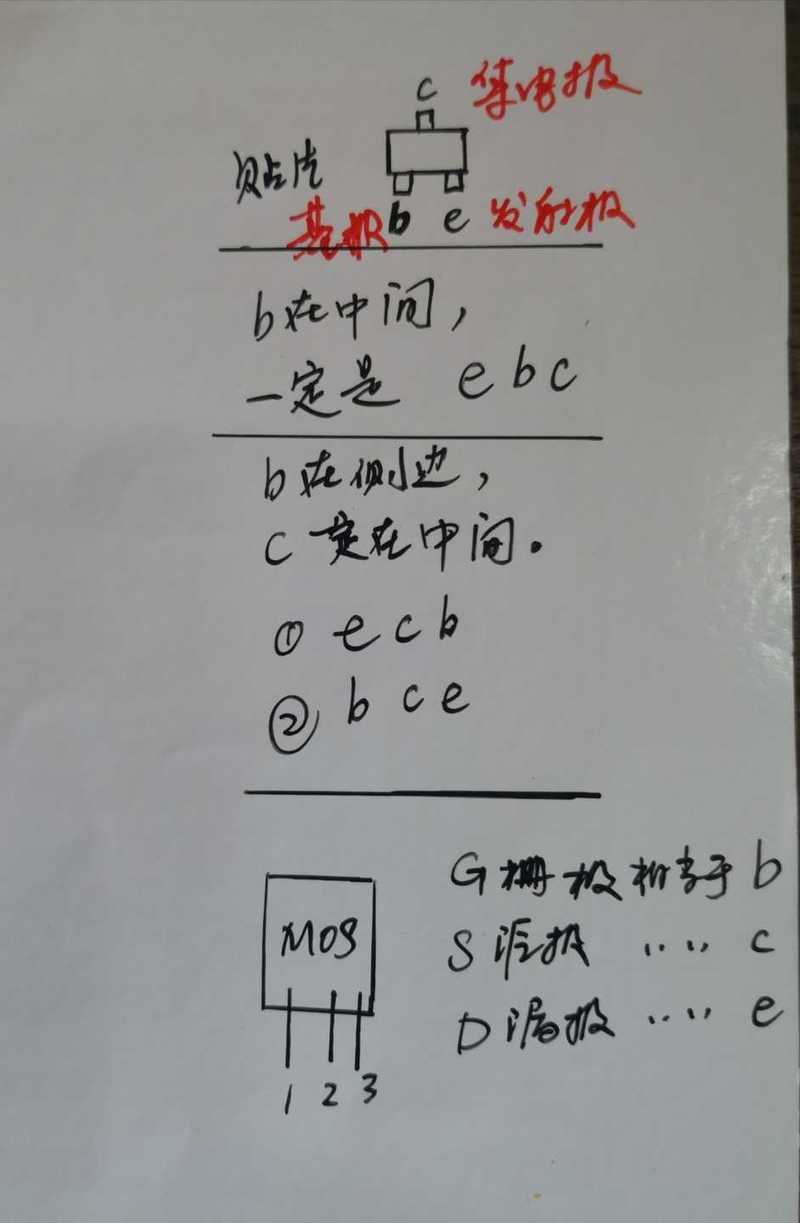 c 集电极
贴片
基极 b e 发射极
b在中间,
一定是 e b c
b在侧边,
c 一定在中间.
① e c b
② b c e
MOS
1 2 3
G栅极相当于 b
S源极 〃 〃 c
D漏极 〃 〃 e